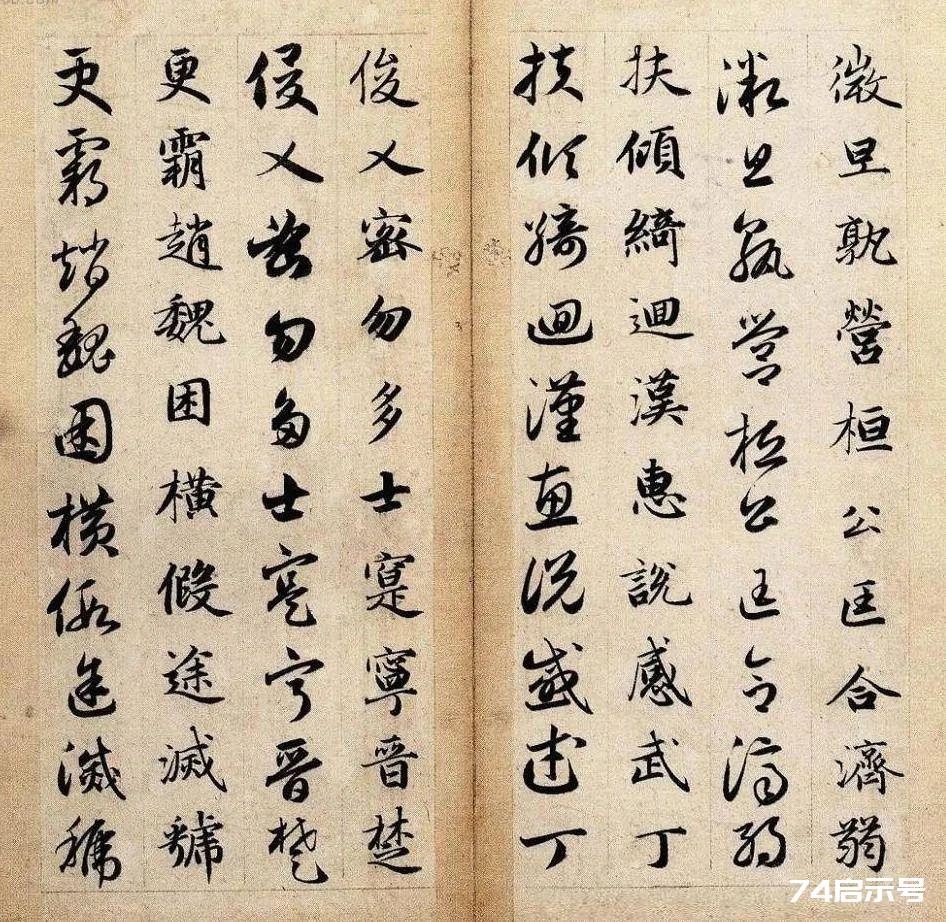 微旦孰營桓公匡合濟弱
微旦孰營桓公匡合濟弱
扶傾綺迴漢惠說感武丁
扶傾綺迴漢惠說感武丁
俊乂密勿多士寔寧晉楚
俊乂密勿多士寔寧晉楚
更霸趙魏困橫假途滅虢
更霸趙魏困橫假途滅虢
74启示号